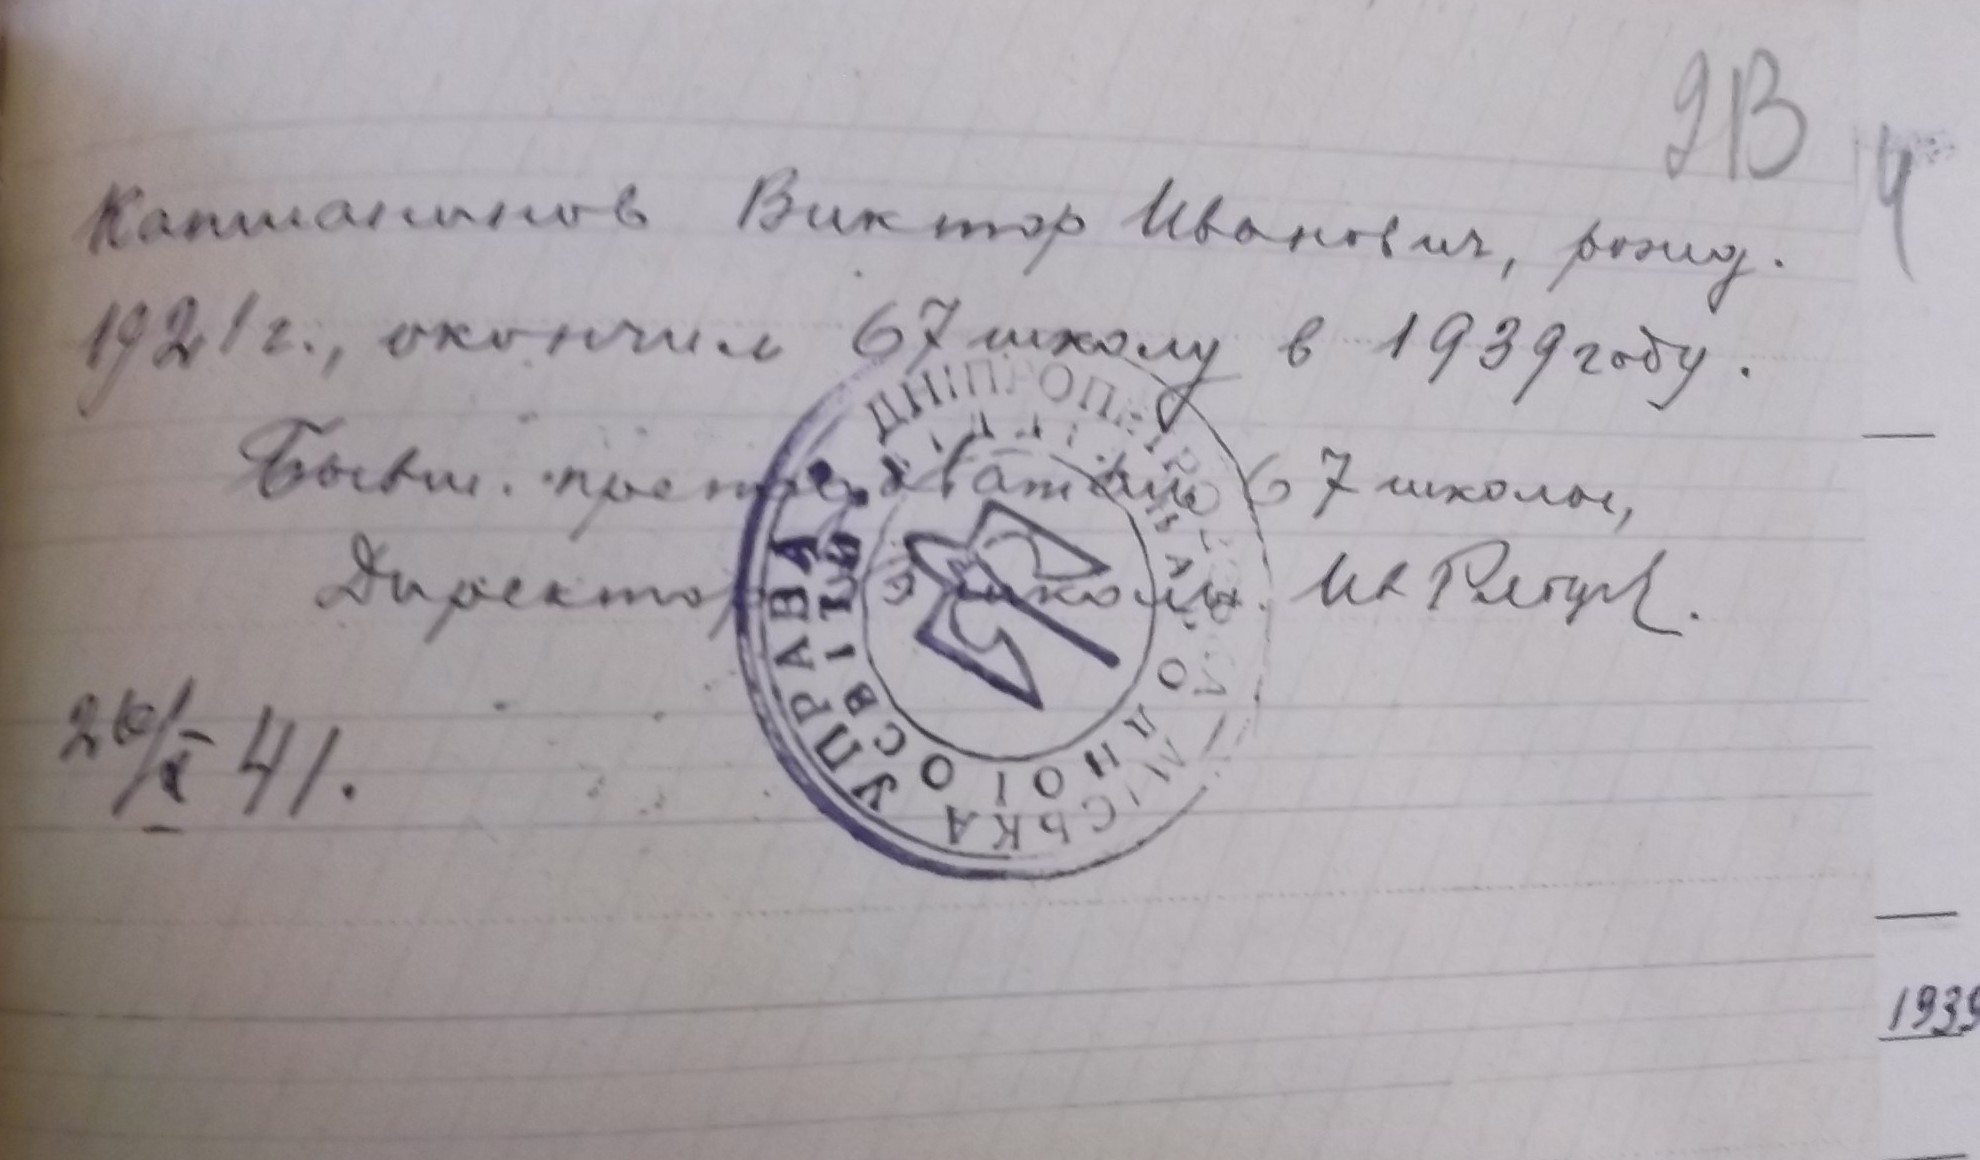 4
Виктор Иванович, рожд.
1921 г., окончил 67 школу в 1939 году.
Бывш. преподаватель 67 школы,
Директор школы.
26/X 41.
ДНІПРОПЕТРОВСЬКА МІСЬКА УПРАВА
ВІДДІЛ НАРОДНОЇ ОСВІТИ
1939